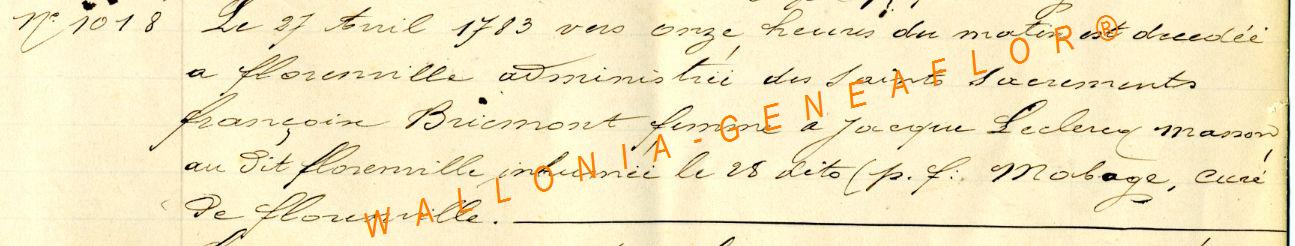 N° 1018 Le 27 Avril 1783 vers onze heures du matin est décedée
a florenville administrée des Saints Sacrements
françoise Bricmont femme a Jacque Leclercq masson,
au dit florenville inhumée le 28 dito (p. f. Mobage, curé
de florenville.
WALLONIA-GENEAFLOR®